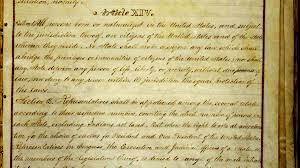 Article XIV.
Section 1. All persons born or naturalized in the United States, and subject
to the jurisdiction thereof, are citizens of the United States and of the State
wherein they reside. No State shall make or enforce any law which shall
abridge the privileges or immunities of citizens of the United States; nor shall
any State deprive any person of life, liberty, or property, without due process of
law, nor deny to any person within its jurisdiction the equal protection of the
laws.
Section 2. Representatives shall be apportioned among the several States
according to their respective numbers, counting the whole number of persons in
each State, excluding Indians not taxed. But when the right to vote at any elec-
tion for the choice of electors for President and Vice President of the United States,
Representatives in Congress, the Executive and Judicial officers of a State, or
the members of the Legislature thereof, is denied to any of the male inhab-